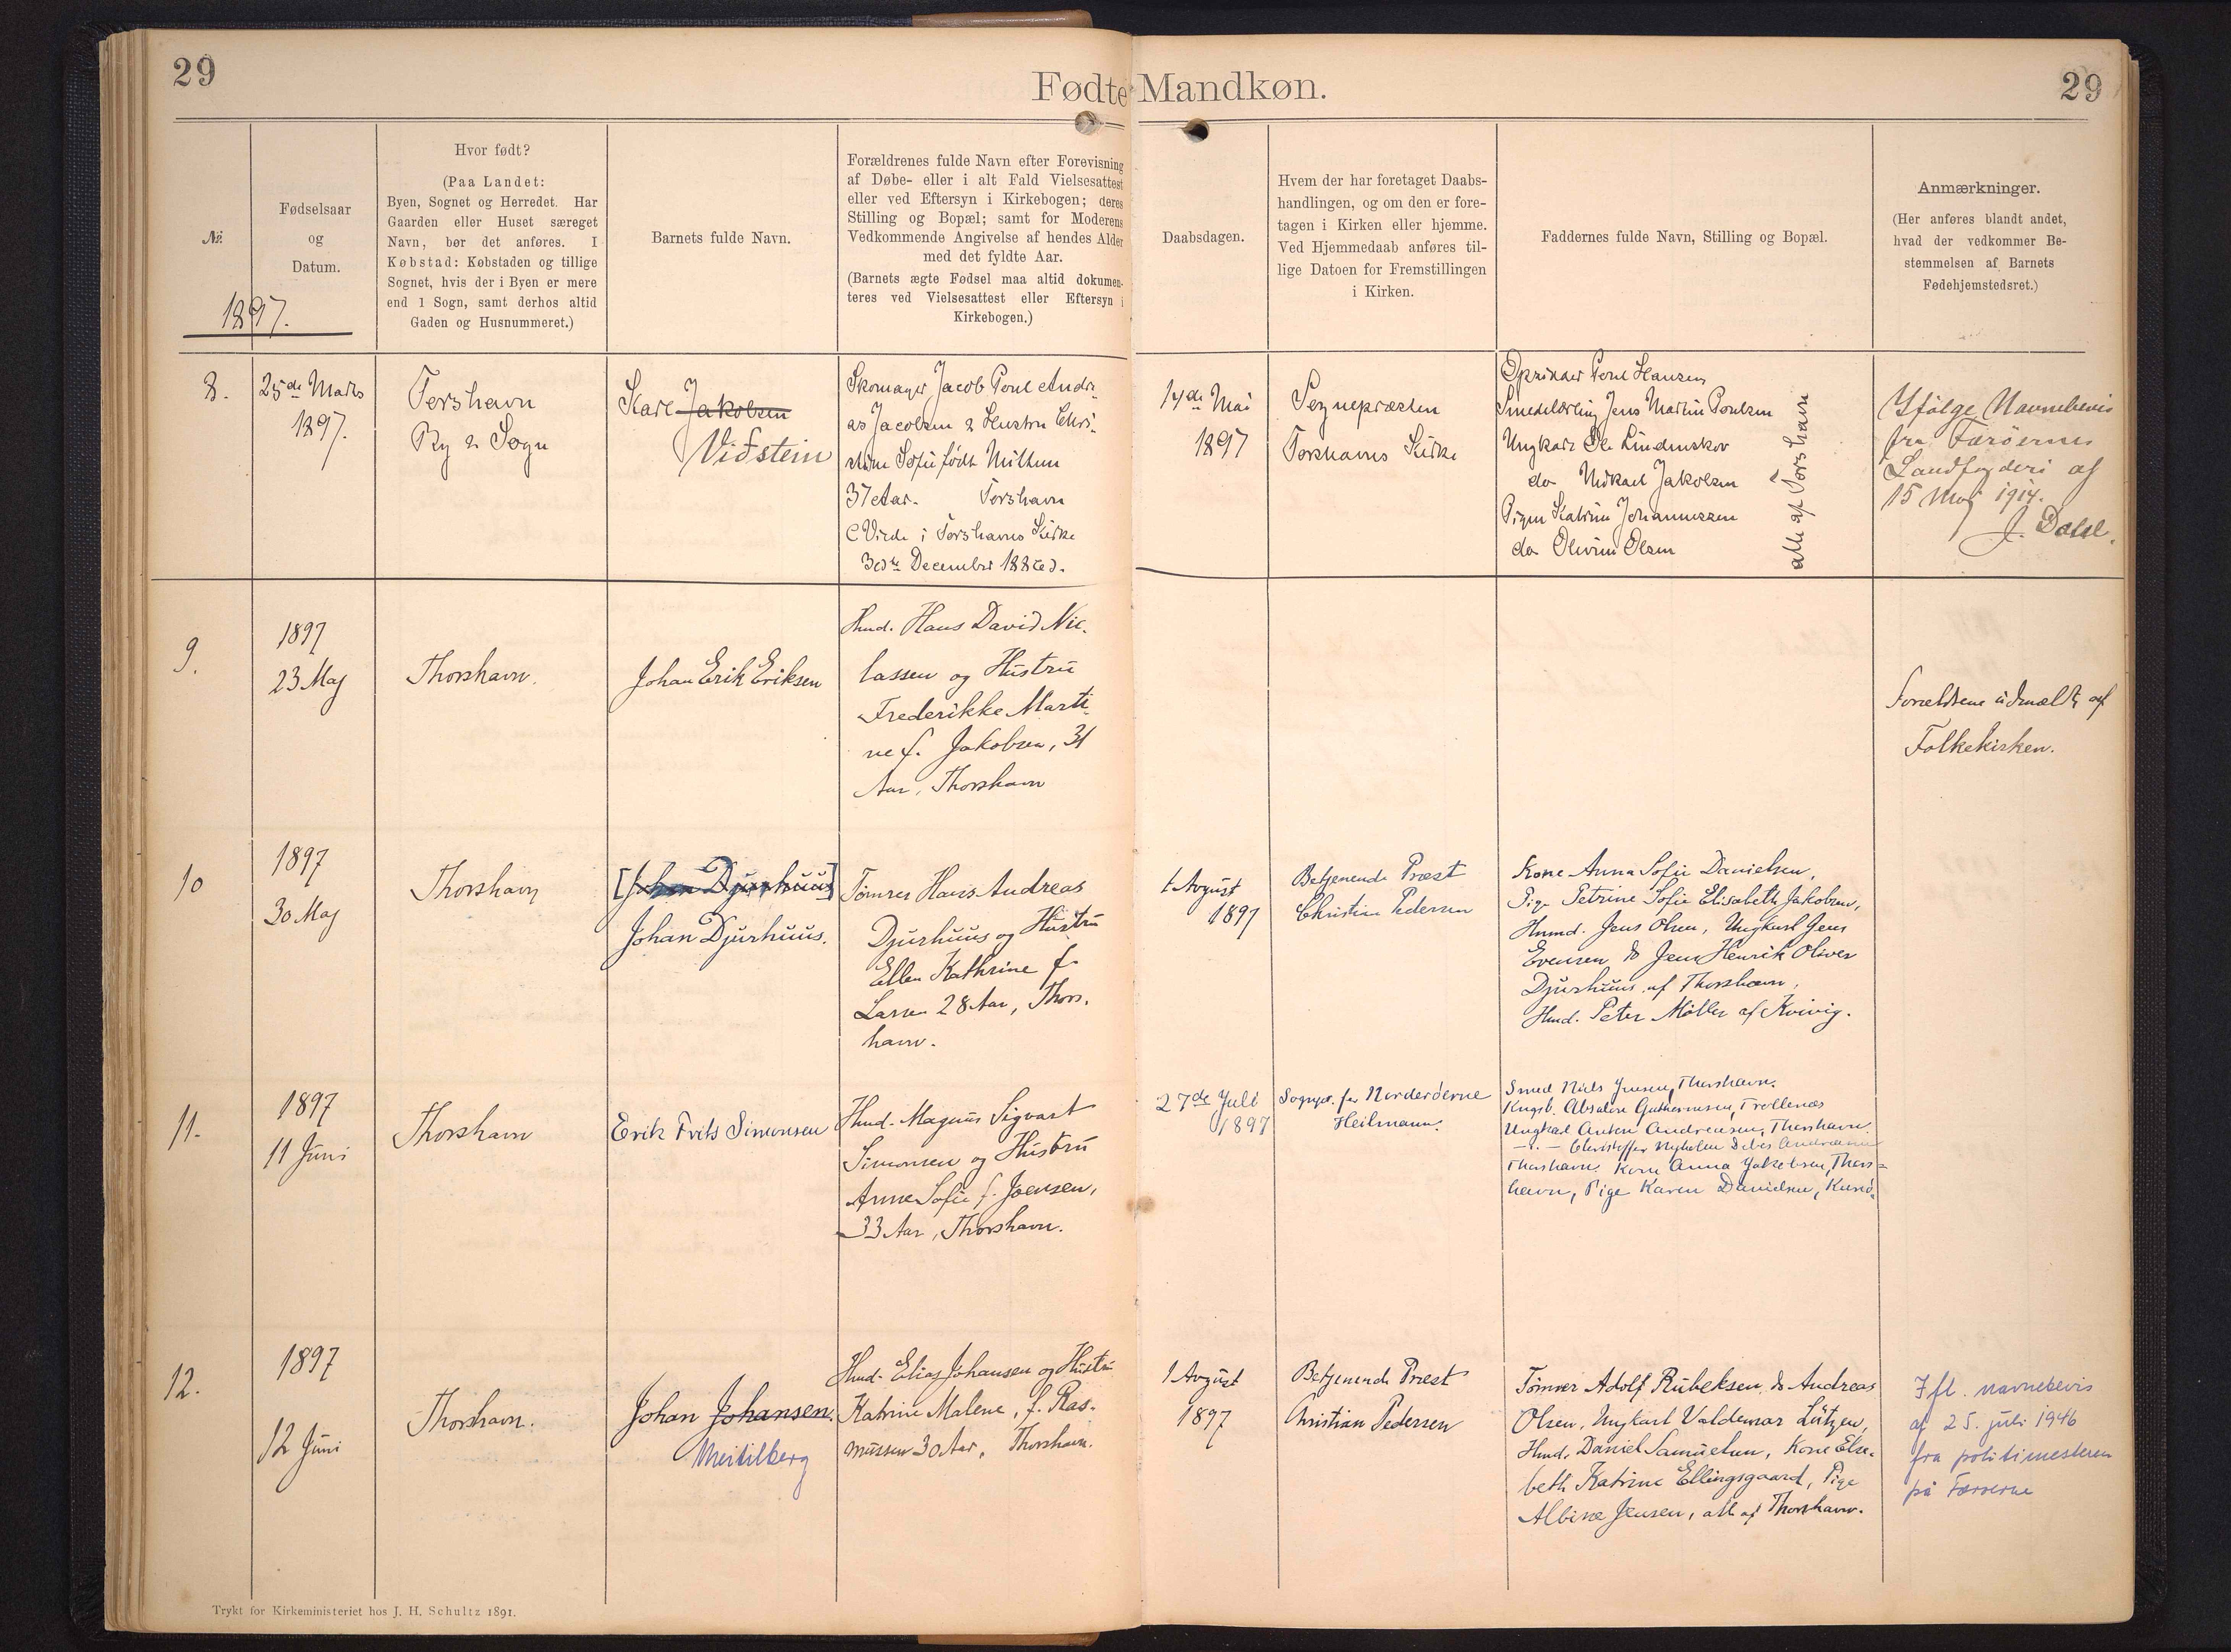 29
Fødte Mandkøn.
29
№.
Fødselsaar
og
Datum.
1897.
Hvor født?
(Paa Landet:
Byen, Sognet og Herredet. Har
Gaarden eller Huset særeget
Navn, bør det anføres. I
Købstad: Købstaden og tillige
Sognet, hvis der i Byen er mere
end 1 Sogn, samt derhos altid
Gaden og Husnummeret.)
Barnets fulde Navn.
Forældrenes fulde Navn efter Forevisning
af Døbe- eller i alt Fald Vielsesattest
eller ved Eftersyn i Kirkebogen; deres
Stilling og Bopæl; samt for Moderens
Vedkommende Angivelse af hendes Alder
med det fyldte Aar.
(Barnets ægte Fødsel maa altid dokumen-
teres ved Vielsesattest eller Eftersyn i
Kirkebogen.)
Daabsdagen.
Hvem der har foretaget Daabs-
handlingen, og om den er fore-
tagen i Kirken eller hjemme.
Ved Hjemmedaab anføres til-
lige Datoen for Fremstillingen
i Kirken.
Faddernes fulde Navn, Stilling og Bopæl.
Anmærkninger.
(Her anføres blandt andet,
hvad der vedkommer Be-
stemmelsen af Barnets
Fødehjemstedsret.)
8.
25de Marts
1897.
Torshavn
By & Sogn
Karl Jakobsen
Viðstein
Skomager Jacob Poul Andre-
as Jacobsen & Hustru Chri-
stine Sofie født
37 Aar. Torshavn
Viede i Torshavns Kirke
December
14de Mai
1897
Sognepræsten
Torshavns Kirke
Poul Hansen
Smedelærling Jens Martin Poulsen
Ungkarl Ole Lindenskov
do Mikael Jakobsen
Pigen Katrine Johannessen
do Olevine Olsen
alle af Torshavn
Ifølge Navnebevis
fra Færöernes
Landfogderi af
15 Maj 1914.
J. Dahl.
9.
1897
23 Maj
Thorshavn.
Johan Erik Eriksen
Hmd. Hans David Nic-
lassen og Hustru
Frederikke Marti-
ne f. Jakobsen, 31
Aar, Thorshavn
Forældrene udmeldt af
Folkekirken.
10
1897
30 Maj
Thorshavn
[Johan Djurhuus]
Johan Djurhuus.
Tømrer Hans Andreas
Djurhuus og Hustru
Ellen Kathrine f.
Larsen 28 Aar, Thors-
havn.
1 August
1897
Betjenende Præst
Christian Pedersen
Kone Anna Sofie Danielsen,
Pige Petrine Sofie Elisabeth Jakobsen,
Hmd. Jens Olsen, Ungkarl Jens
Evensen do Jens Henrik Oliver
Djurhuus af Thorshavn,
Hmd. Peter Møller af Kvivig.
11.
1897
11 Juni
Thorshavn
Erik Frits Simonsen
Hmd. Magnus Sigvart
Simonsen og Hustru
Anne Sofie f. Joensen,
33 Aar, Thorshavn.
27de Juli
1897
Sognepr. for Norderøerne
Heilmann.
Smed Niels Thorshavn.
Kngsb. Absalon Guttormsen, Trøllenæs
Ungkarl Anton Andreasen, Thorshavn.
— " — Christoffer Nyholm Debes
Thorshavn. Kone Anna Jakobsen, Thors=
havn, Pige Karen Danielsen, Kunø.
12.
1897
12 Juni
Thorshavn.
Johan Johansen.
Meitilberg
Hmd. Elias Johansen og Hustru
Katrine Malene, f. Ras-
mussen 30 Aar, Thorshavn.
1 August
1897
Betjenende Præst
Christian Pedersen
Tømrer Adolf Rubeksen, do Andreas
Olsen, Ungkarl Valdemar Lützen,
Hmd. Daniel Samuelsen, Kone Else-
beth Katrine Ellingsgaard, Pige
Albine Jensen, alle af Thorshavn.
Ifl. navnebevis
af 25. juli 1946
fra politimesteren
på Færøerne
Trykt for Kirkeministeriet hos J. H. Schultz 1891.